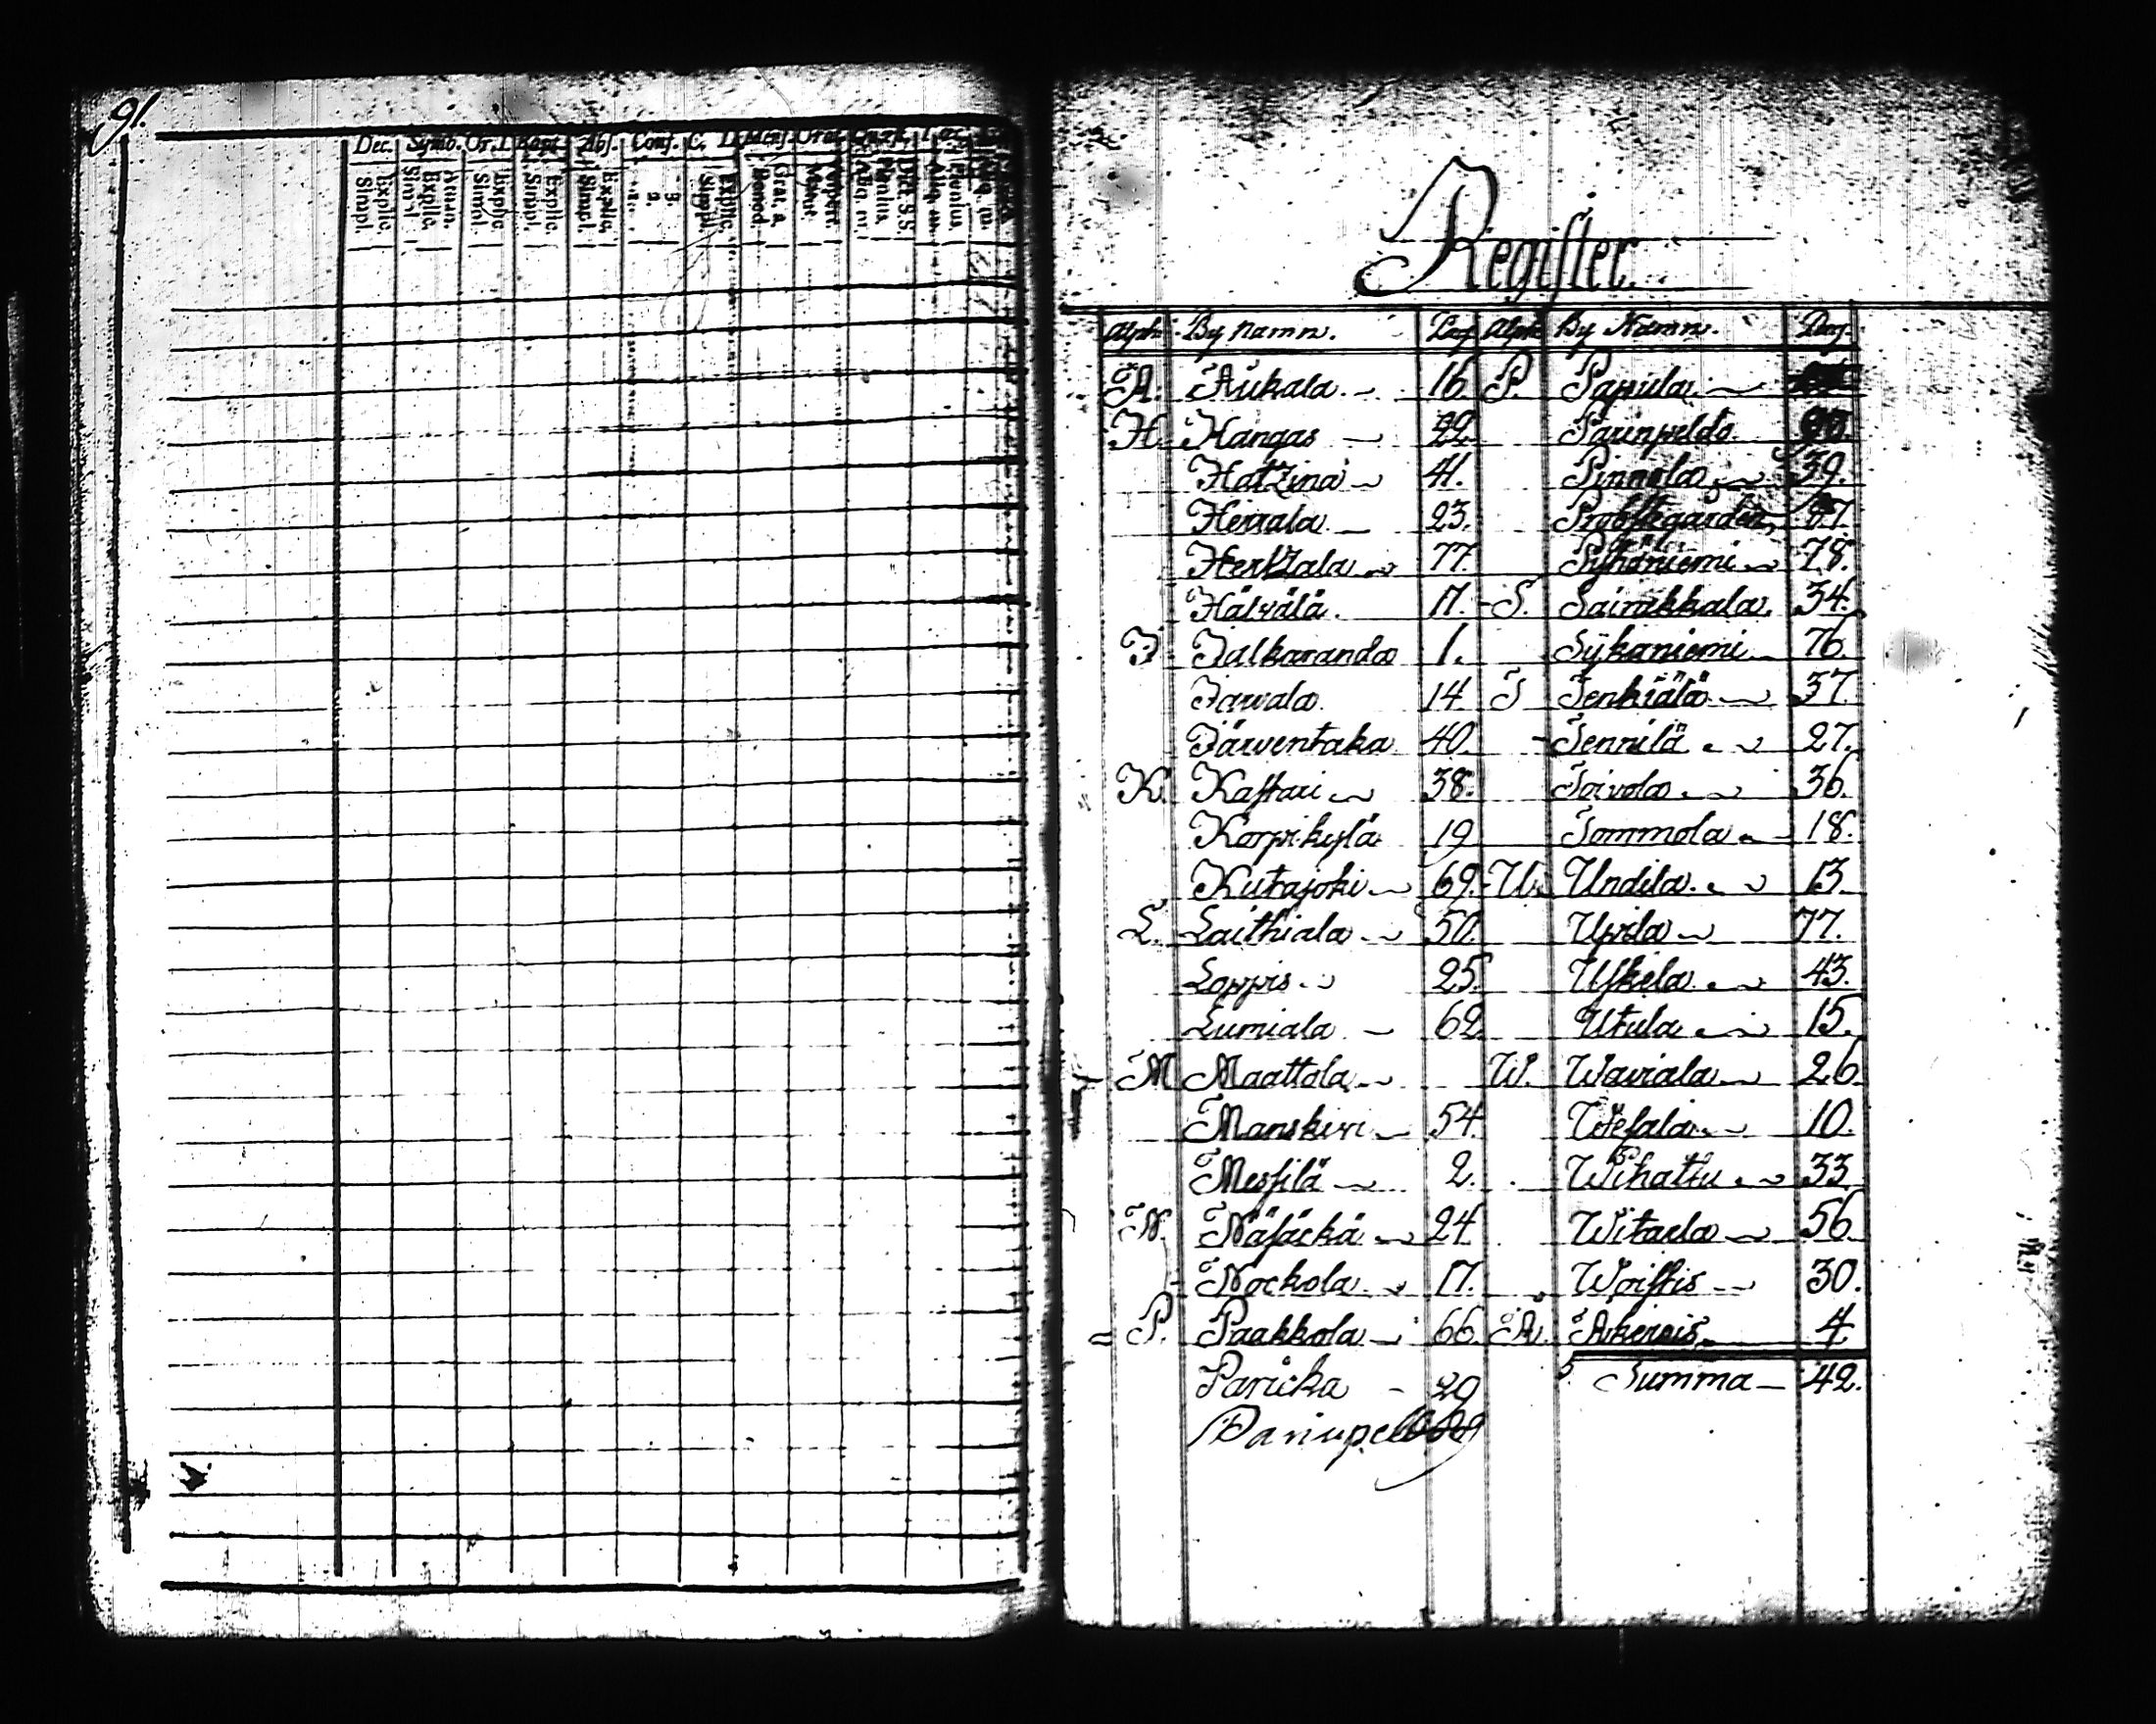 91.
Dec. Symb. Or. D. Bapt. Abs. Conf. C. D. Mens. Orat. Quæst.
Simpl. Explic. Simpl. Explic. Athan. Simpl. Explic. Simpl. Explic. Simpl. Explic. Simpl. Explic. Bened. Grat. a. Matut. Vespert.
Register.
Alph. By namn. Pag. Alph. By Namn. Pag.
A. Aukala 16. P. Papula
H. Hangas 22. Parinpeldo
Hatzina 41. Pinnola 39.
Herrala 23. Probstegården
Hertzala 77. Pyhäniemi 78.
Hälvälä 17. S. Sairakkala 34.
J. Jalkaranda 1. Sykäniemi 76.
Jarvala 14. T Tenhiälä 37.
Järventaka 40. Tennilä 27.
K. Kastari 38. Toivola 36.
Korpikylä 19 Tommola 18.
Kutajoki 69. U. Undila 13.
L. Laithiala 50. Upila 77.
Loppis 25. Uskela 43.
Lumiala 62 Utula 15.
M Maattola W. Waviala 26.
Manskivi 54. Wesala 10.
Messilä 2. Wihattu 33.
N. Näsäckä 24. Witaela 56.
Nockola 17. Woistis 30.
P. Paakkola 66. Å. Åkerois 4.
Paricka 29 Summa 42.